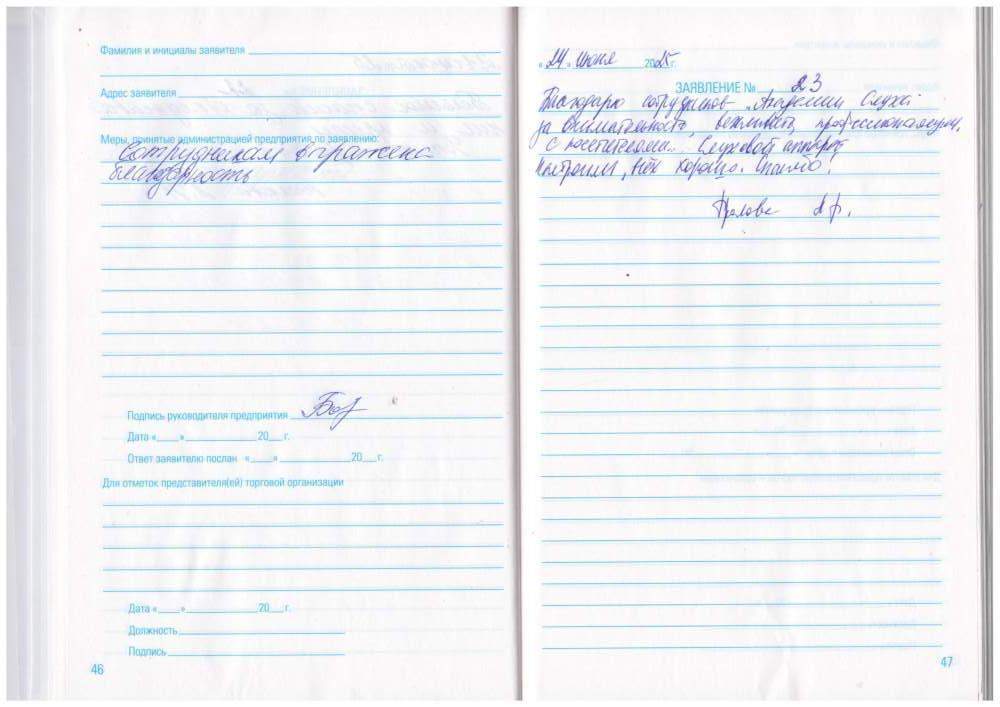 Фамилия и инициалы заявителя
Адрес заявителя
Меры, принятые администрацией предприятия по заявлению:
Сотрудникам выражена
благодарность
Подпись руководителя предприятия
Дата « » 20 г.
Ответ заявителю послан « » 20 г.
Для отметок представителя(ей) торговой организации
Дата « » 20 г.
Должность
Подпись
46
«24» июня 2025 г.
ЗАЯВЛЕНИЕ № 23
Благодарю сотрудников "Академии Слуха"
за внимательность, вежливость, профессионализм,
с посетителями. Слуховой аппарат
настроили, всё хорошо. Спасибо.
47